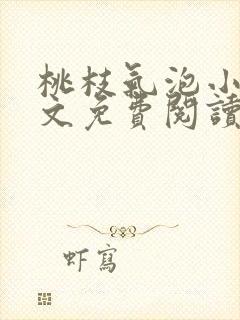 桃枝氣泡小
文免費閱讀
虾寫